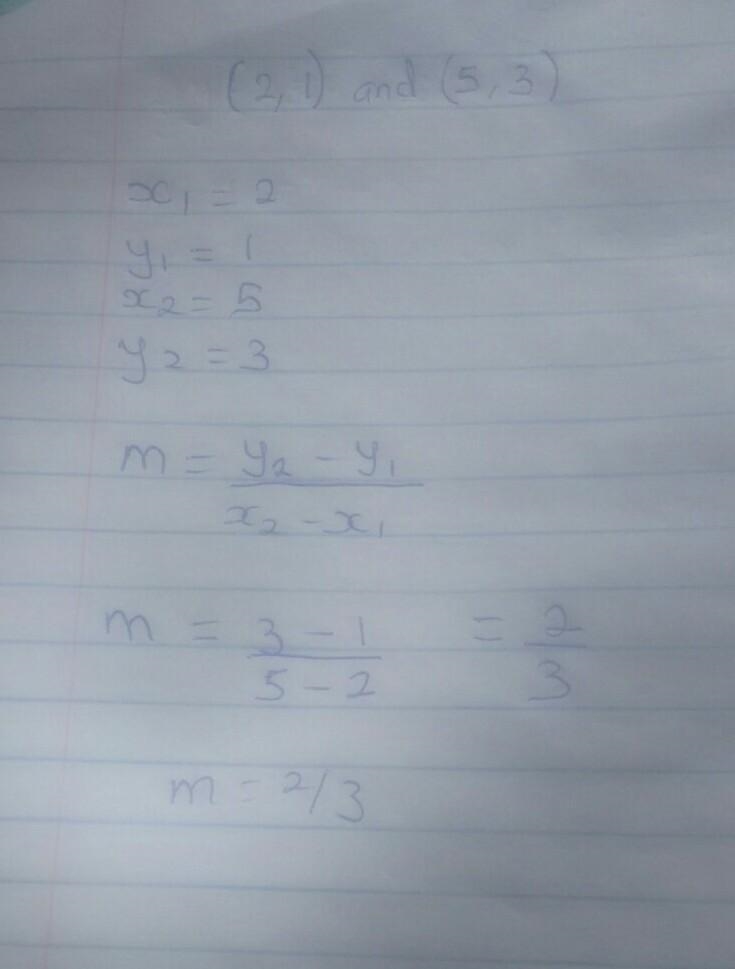 (2,1) and (5,3)
x₁ = 2
y₁ = 1
x₂ = 5
y₂ = 3
m = y₂ - y₁
x₂ - x₁
m = 3 - 1 = 2
5 - 2 3
m = 2/3